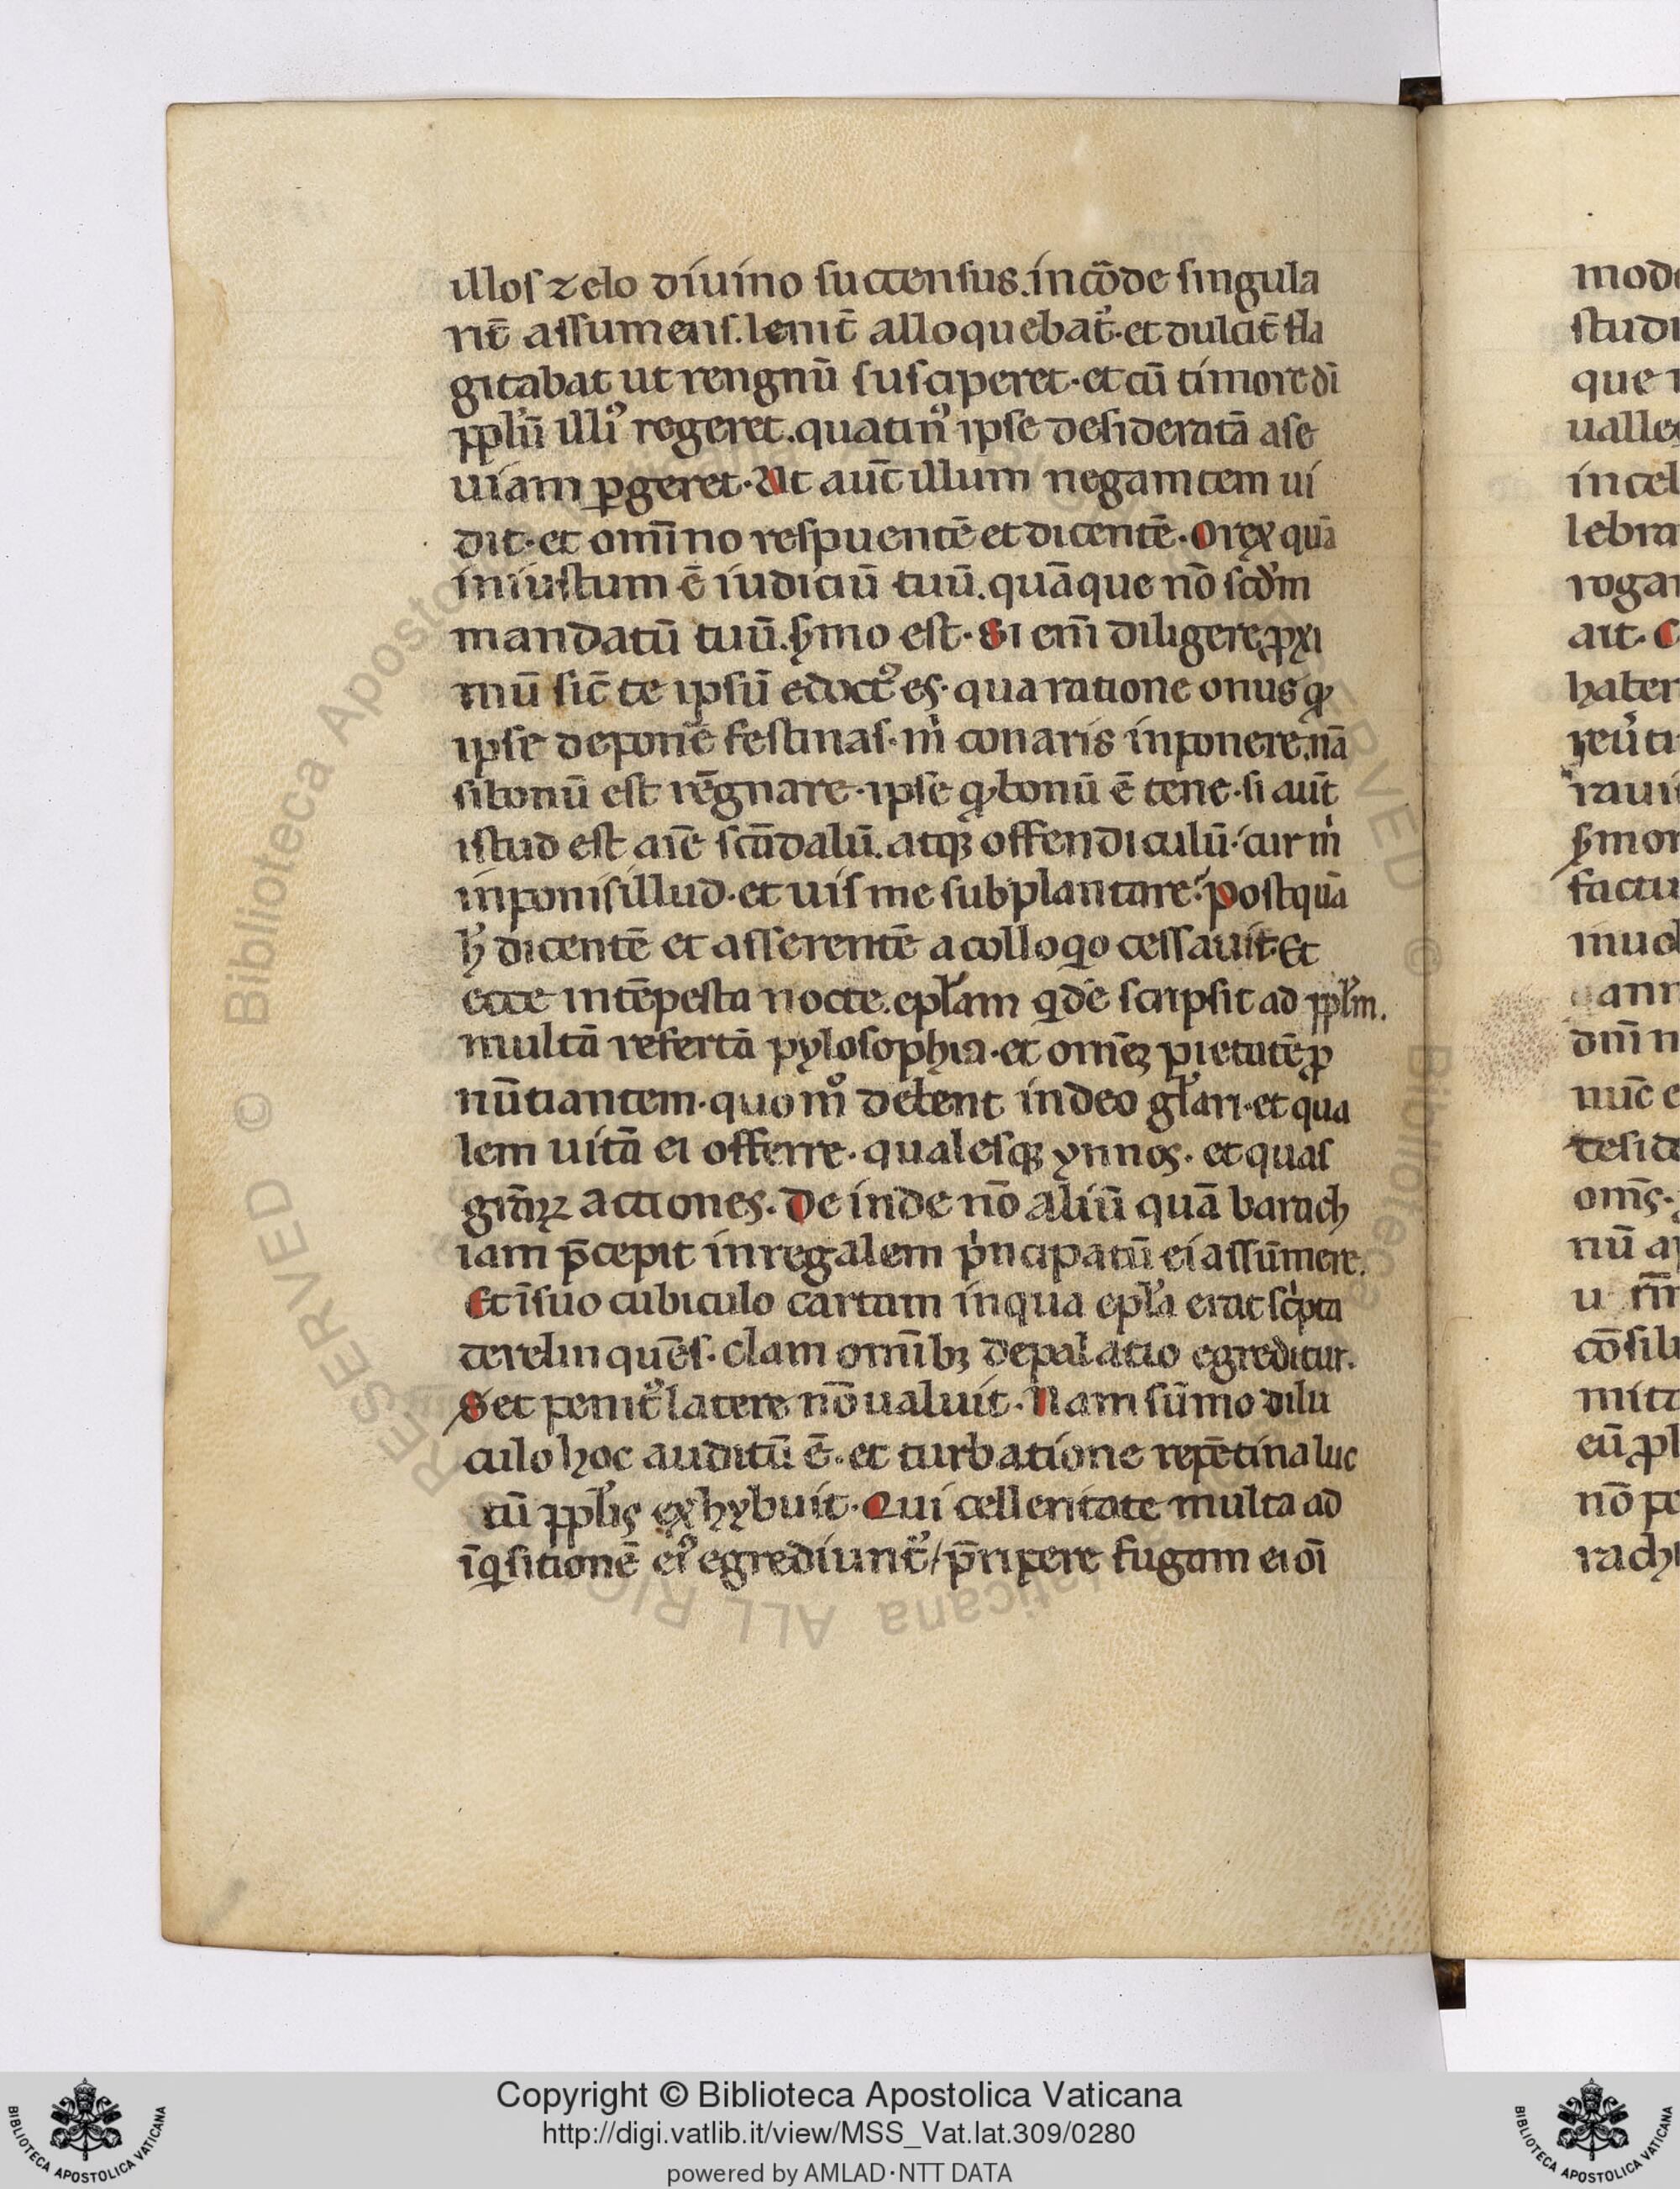 illos zelo diuino succensus. in cōde singula
rit̄ assumens. lenit̄ alloquebat᷑. et dulcit̄ fla
gitabat ut rengnū susciperet. et cū timore dī
pplm̄ illiꝰ regeret. quatinꝰ ipse desideratā a se
uiam ꝑgeret. Ut aut̄ illum negamtem ui
dit. et om̄ino respuentē et dicentē. O rex quā
iniustum ē iudiciū tuū. quāque nō scd̄m
mandatū tuū. ẜmo est. Si em̄ diligere ꝓxi
mū sic̄ te ipsū edoctꝰ es. qua ratione onus qͥ
ipse deponē festinas. m̄ conaris inponere. nā
si bonū est rēgnare. ipse qͥ bonū ē tene. si aut̄
istud est aīe scādalū. atqꝫ offendiculū. cur m̄
inponis illud. et uis me subplantare? Postquā
ħ dicentē et asserentē a colloqͥo cessauit. Et
ecce intēpesta nocte. epl̄am qͥdē scripsit ad ppl̄m.
multā refertā pylosophia. et om̄eꝫ pietatē ꝓ
nūtiantem. quom̊ debent in deo gl̄ari. et qua
lem uitā ei offerre. qualesqꝫ ynnos. et quas
gr̄aꝝ actiones. De inde nō aliū quā barach
iam p̄cepit in regalem pͥncipatū ei assūmere.
Et ī suo cubiculo cartam in qua epl̄a erat scͥpta
derelinquēs. clam om̄ibꝫ de palatio egreditur.
Set penitꝰ latere nō ualuit. Nam sūmo dilu
culo hoc auditū ē. et turbatione repētina luc
tū ppl̄is exhybuit. Qui celleritate multa ad
īqͥsitionē eiꝰ egrediunt᷑/ p̄ripere fugam ei oī
mode
studi
que
ualle
in cel
lebra
roga
ait.
haber
rauit
ẜmon
factu
mul
ann
dn̄i n
nūc e
om̄s.
nū a
u
cōsilu
mitt
eū ꝓl
nō po
rach
Copyright © Biblioteca Apostolica Vaticana
http://digi.vatlib.it/view/MSS_Vat.lat.309/0280
powered by AMLAD·NTT DATA
BIBLIOTECA APOSTOLICA VATICANA
BIBLIOTECA APOSTOLICA VATICANA